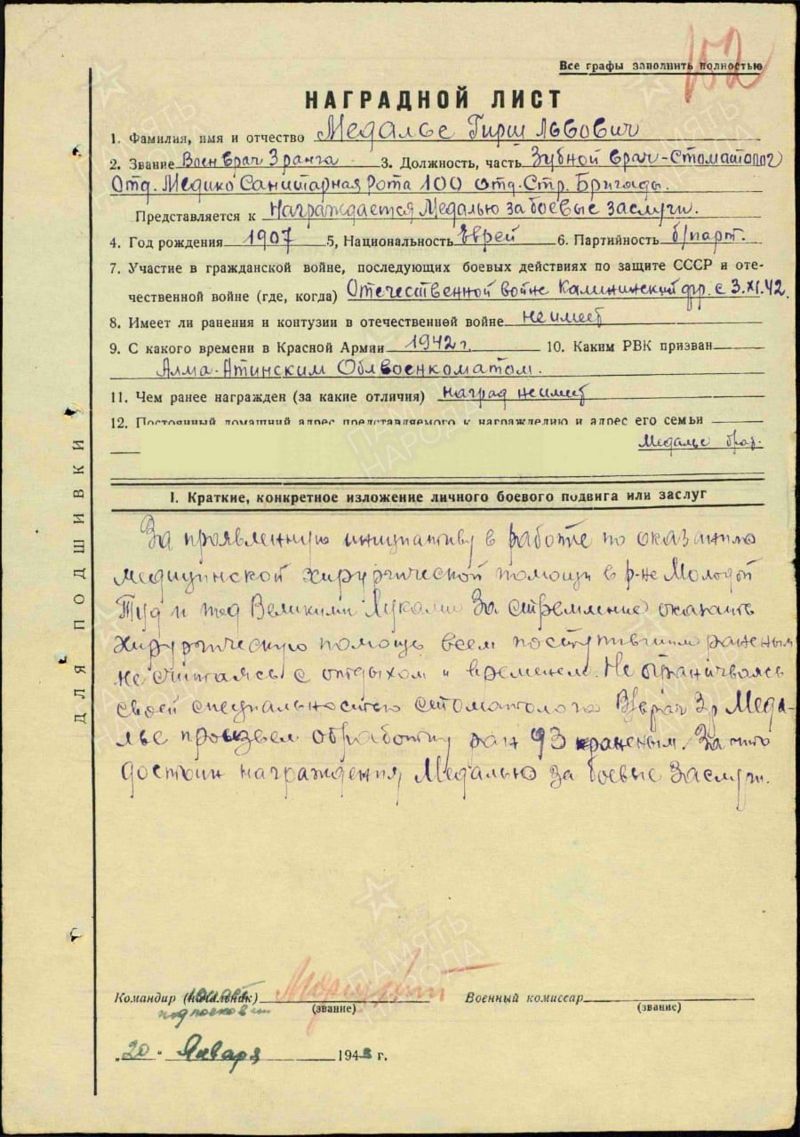 152
Все графы заполнить полностью
НАГРАДНОЙ ЛИСТ
1. Фамилия, имя и отчество Медалье Гирш Львович
2. Звание Воен врач 3 ранга 3. Должность, часть Зубной врач-Стоматолог
Отд. Медико Санитарная Рота 100 отд. Стр. Бригады.
Представляется к Награждается Медалью за боевые заслуги.
4. Год рождения 1907 5, Национальность Еврей 6. Партийность б/парт.
7. Участие в гражданской войне, последующих боевых действиях по защите СССР и оте-
чественной войне (где, когда) Отечественной войне Калининский фр. с 3.XI.42.
8. Имеет ли ранения и контузии в отечественней войне не имеет
9. С какого времени в Красной Армии 1942 г. 10. Каким РВК призван
Алма-Атинским Облвоенкоматом.
11. Чем ранее награжден (за какие отличия) наград не имеет
12. Постоянный домашний адрес представляемого к награждению и адрес его семьи
Медалье
I. Краткие, конкретное изложение личного боевого подвига или заслуг
За проявленную инициативу в работе по оказанию
медицинской хирургической помощи в р-не Молодой
Туд и под Великими Луками За стремление оказать
хирургическую помощь всем поступившим раненым
не считаясь с отдыхом и временем. Не ограничиваясь
своей специальностью стоматолога В/врач 3 р Меда-
лье произвел обработку ран 93 раненым. За что
достоин награждения Медалью за боевые заслуги.
ДЛЯ ПОДШИВКИ
Командир (начальник) Военный комиссар
подполковник (звание) (звание)
20. Января 1943 г.
ПАМЯТЬ НАРОДА